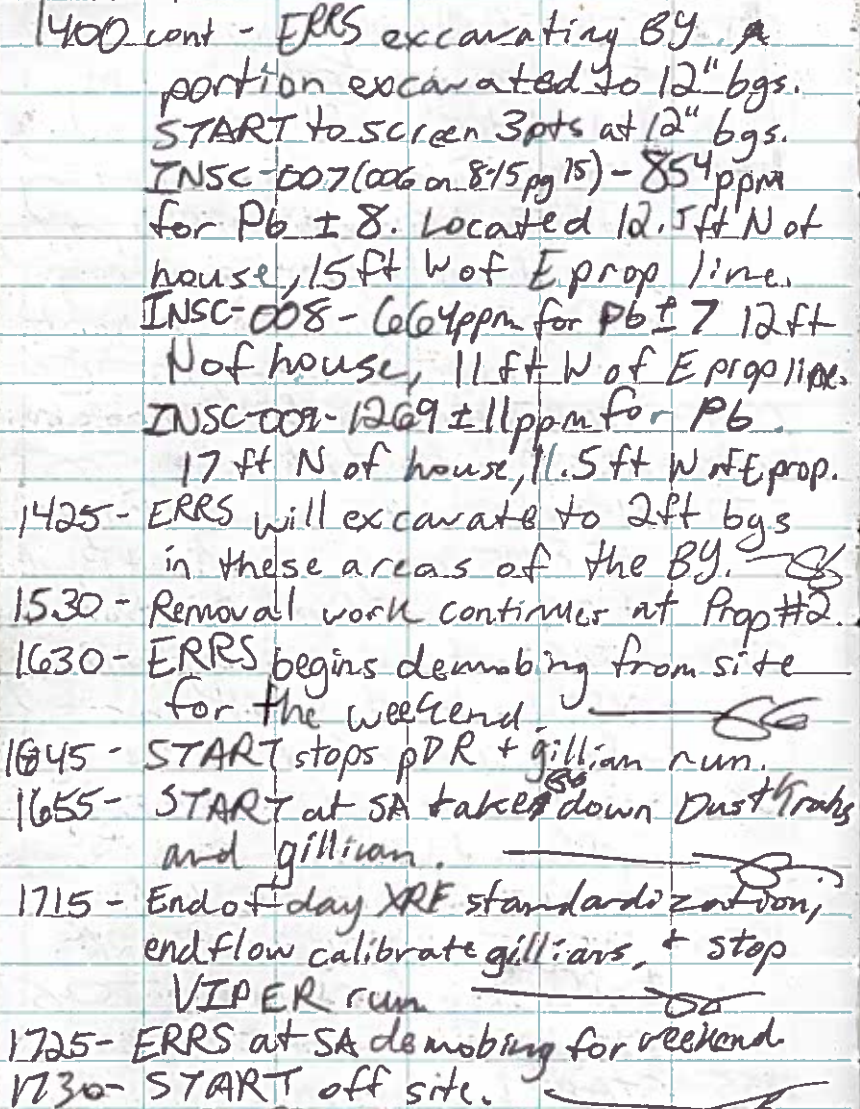 1400 cont - ERRS excavating BY. A
portion excavated to 12" bgs.
START to screen 3pts at 12" bgs.
INSC-007 (006 on 8/15 pg 15) - 854 ppm
for Pb ± 8. Located 12.5ft N of
house, 15 ft W of E prop line.
INSC-008 - 664ppm for Pb ± 7 12 ft
N of house, 11 ft W of E prop line.
INSC-009 - 1269 ± 11 ppm for Pb
17 ft N of house, 11.5 ft W of E prop.
1425 - ERRS will excavate to 2ft bgs
in these areas of the BY.
1530 - Removal work continues at Prop #2.
1630 - ERRS begins demobing from site
for the weekend
1645 - START stops pDR + gillian run.
1655 - START at SA takes down DustTraks
and gillian.
1715 - End of day XRF standardization,
end flow calibrate gillians, + stop
VIPER run
1725 - ERRS at SA demobing for weekend.
1730 - START off site.